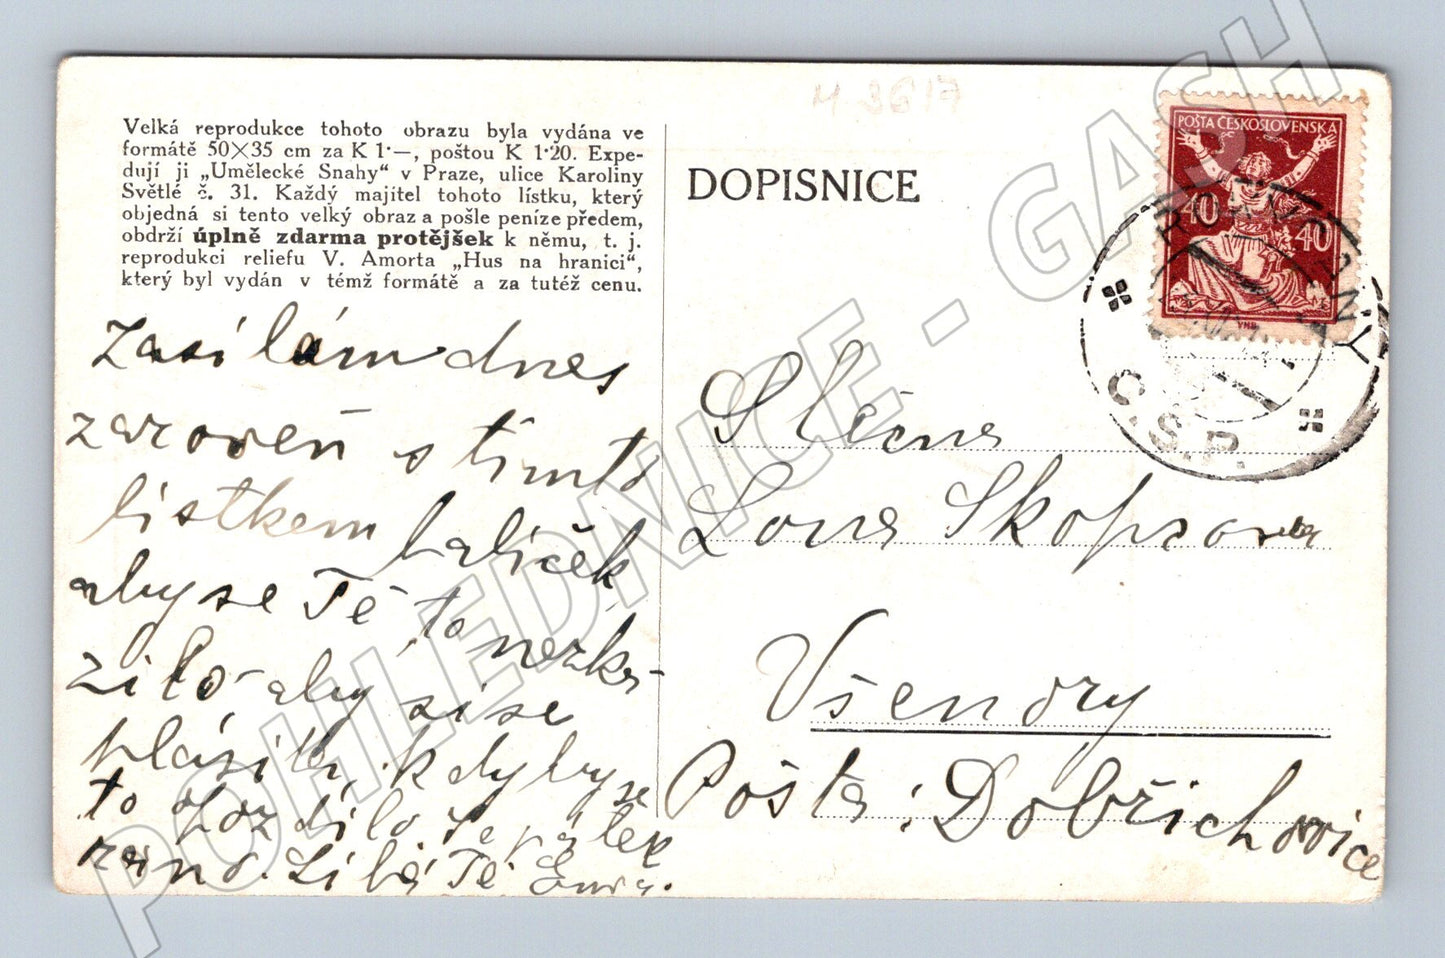 M 3617
Velká reprodukce tohoto obrazu byla vydána ve
formátě 50×35 cm za K 1·—, poštou K 1·20. Expe-
dují ji „Umělecké Snahy“ v Praze, ulice Karoliny
Světlé č. 31. Každý majitel tohoto lístku, který
objedná si tento velký obraz a pošle peníze předem,
obdrží úplně zdarma protějšek k němu, t. j.
reprodukci reliefu V. Amorta „Hus na hranici“,
který byl vydán v témž formátě a za tutéž cenu.
DOPISNICE
POŠTA ČESKOSLOVENSKÁ
40 40
Č.S.P.
Zasílám dnes
zároveň s tímto
lístkem balíček
aby se Tě to
aby si se
kdyby se
to
ráno. Líbá Tě
Slečna
Skopcova
Všenory
Pošta: Dobřichovice
POHLEDNICE - GASH